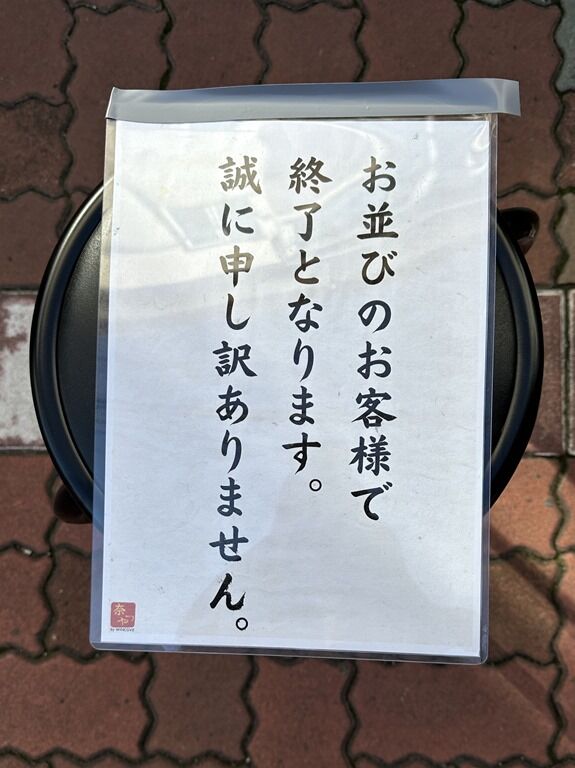 お並びのお客様で
終了となります。
誠に申し訳ありません。